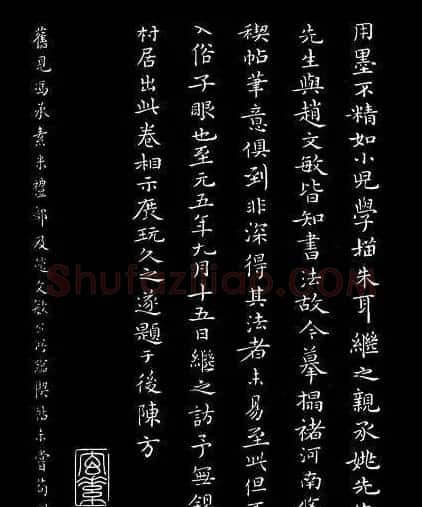 用墨不精如小兒學描朱耳繼之親承姚先
先生與趙文敏皆知書法故今摹搨褚河南
稧帖筆意俱到非深得其法者未易至此但不
入俗子眼也至元五年九月十五日繼之訪予無錫
村居出此卷相示展玩久之遂題于後陳方
舊見馮承素米禮部及趙文敏臨禊帖未嘗苟
Shufaziliao.COM